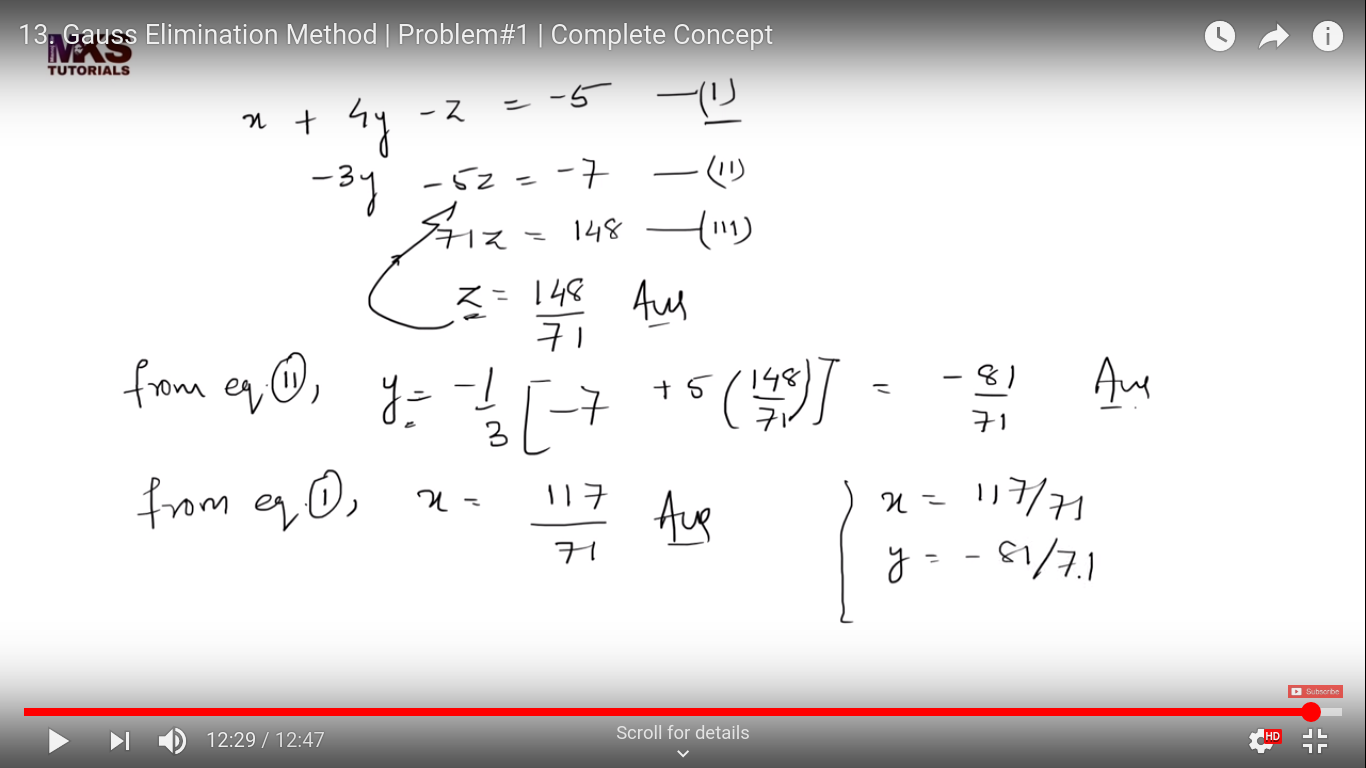 13. Gauss Elimination Method | Problem#1 | Complete Concept
MKS
TUTORIALS
x + 4y - z = -5 —(I)
-3y - 5z = -7 —(II)
71z = 148 —(III)
z = 148/71 Ans
from eq. (II), y = -1/3 [-7 + 5(148/71)] = -81/71 Ans
from eq. (I), x = 117/71 Ans
x = 117/71
y = -81/71
Subscribe
12:29 / 12:47
Scroll for details
HD